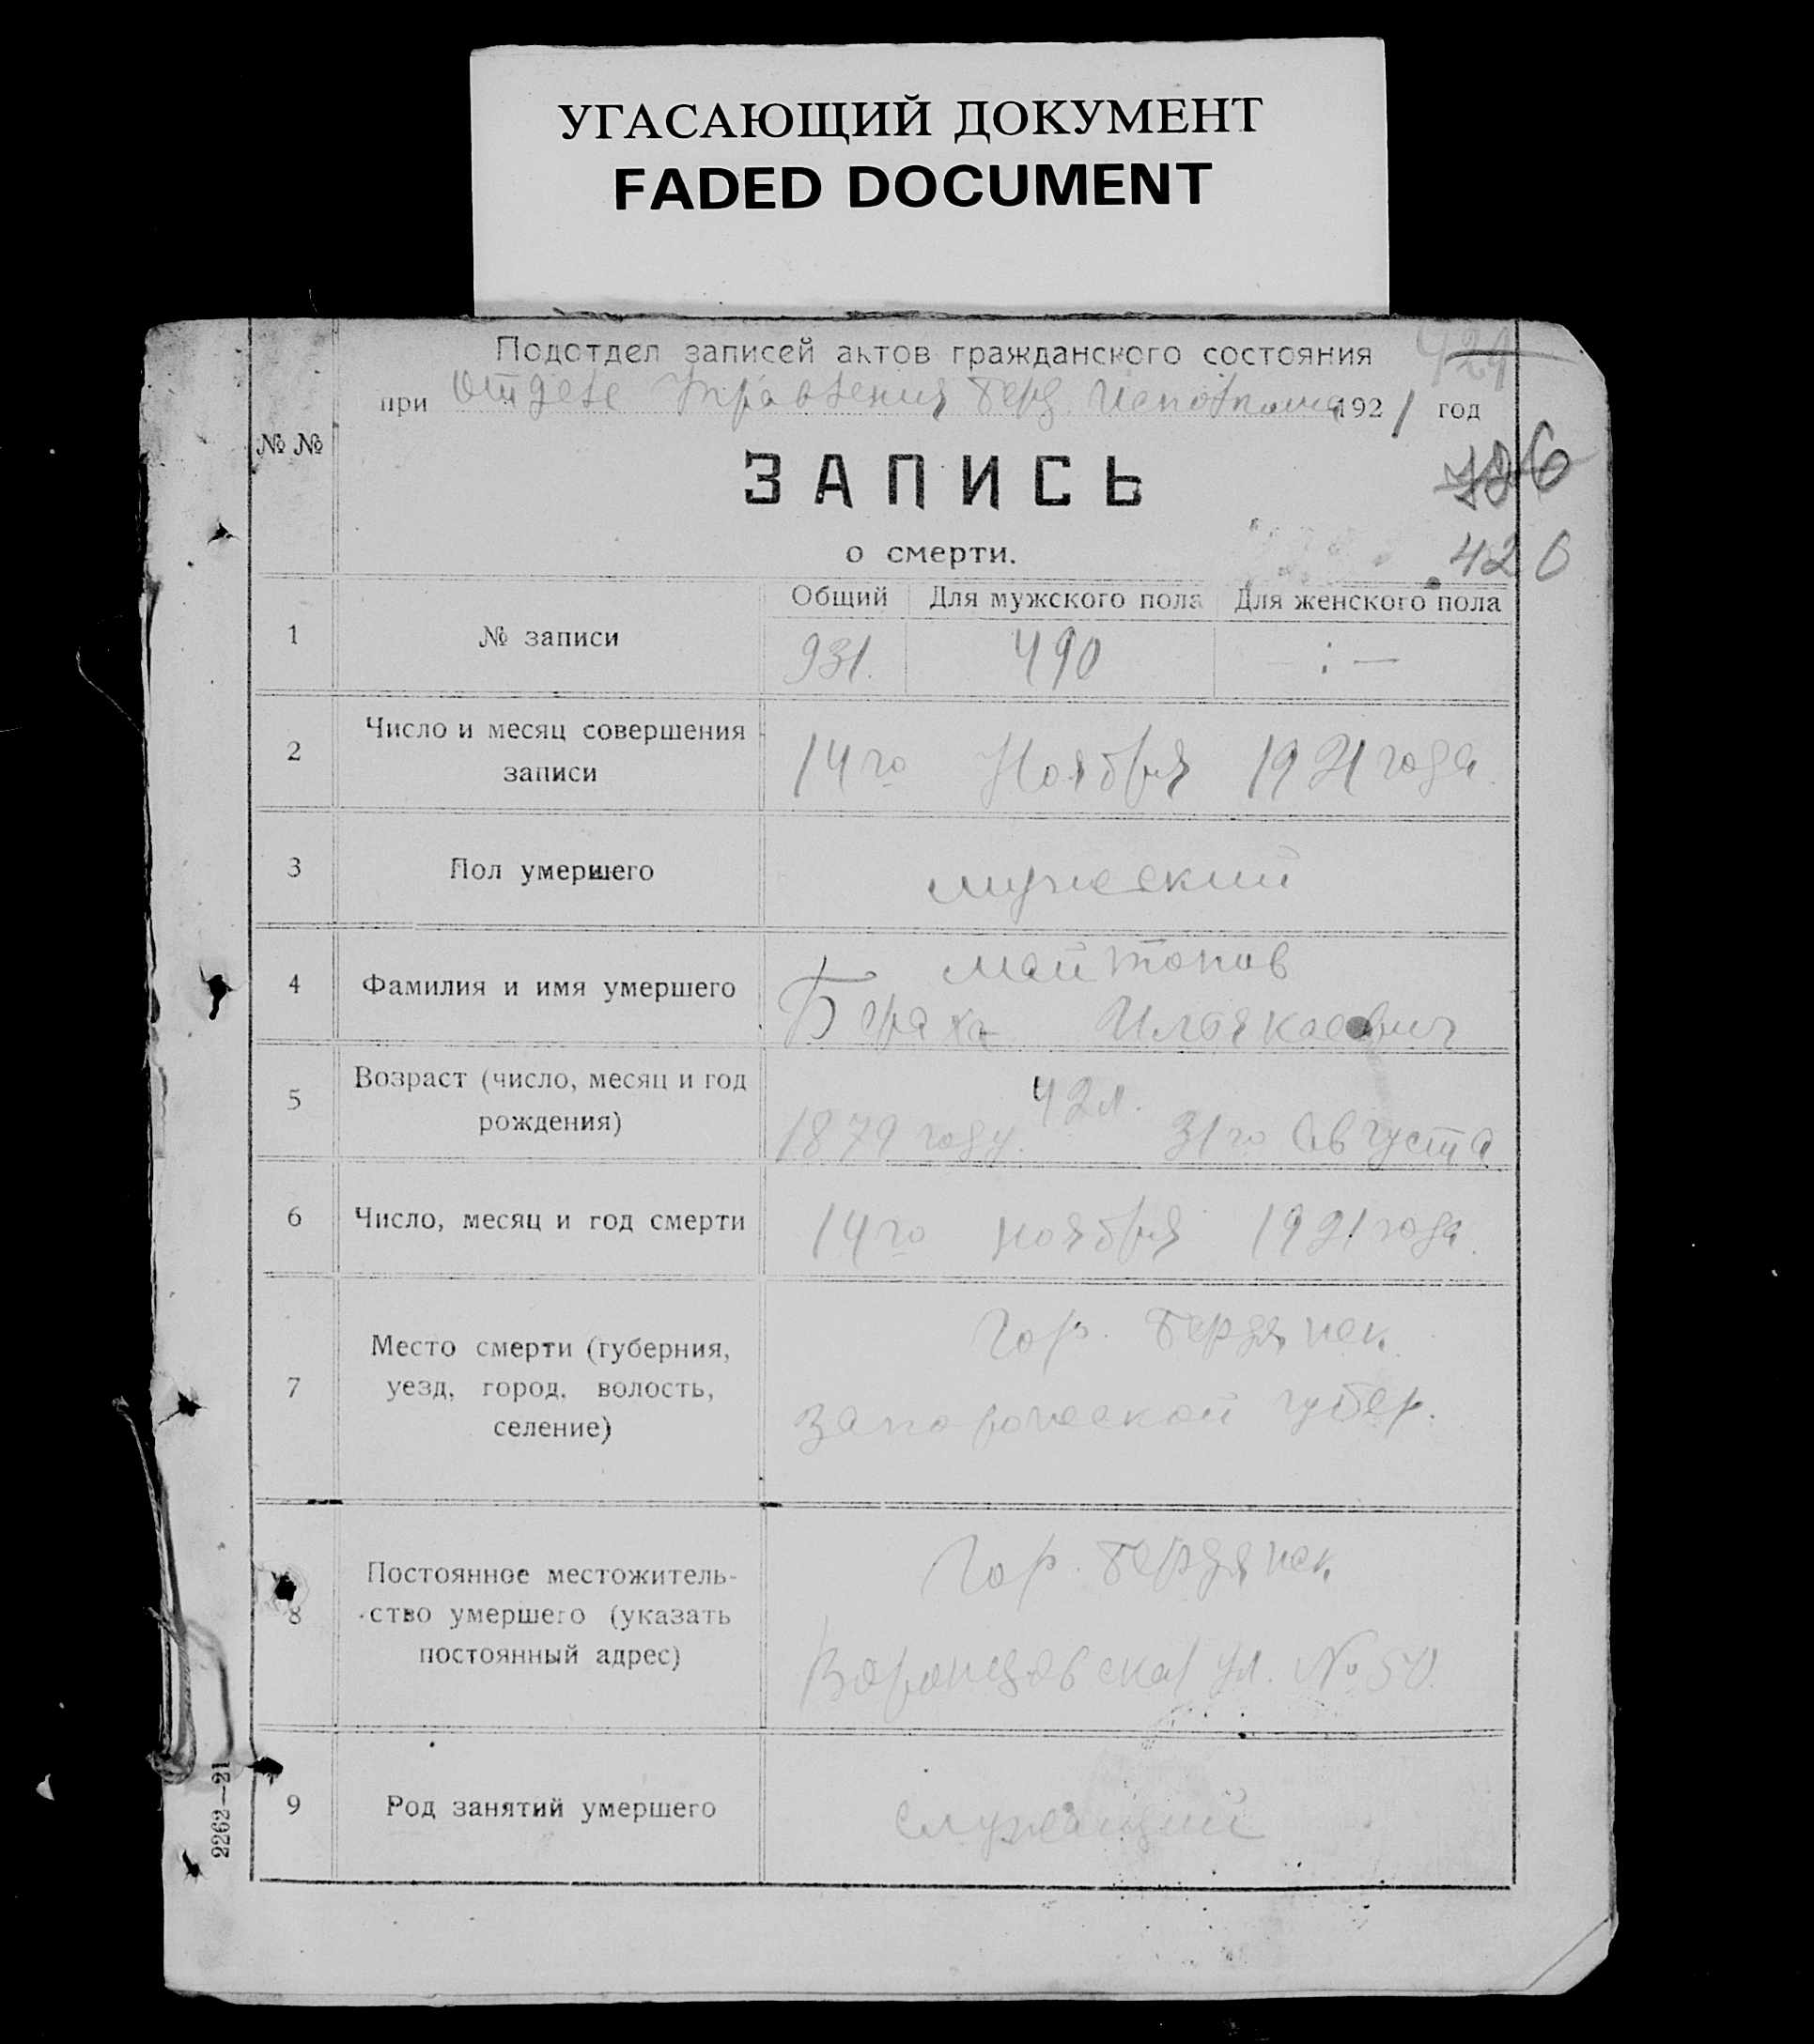 УГАСАЮЩИЙ ДОКУМЕНТ
FADED DOCUMENT
Подотдел записей актов гражданского состояния
429
при Отделе Управления Берд. Исполкома 1921 год
№ №
ЗАПИСЬ
о смерти.
426
Общий Для мужского пола Для женского пола
1 № записи 931. 490 - : -
2 Число и месяц совершения
записи
14го Ноября 1921 года.
3 Пол умершего мужеский
4 Фамилия и имя умершего
Бераха
5 Возраст (число, месяц и год
рождения)
42 л.
1879 году. 31го Августа
6 Число, месяц и год смерти 14го ноября 1921 года.
7 Место смерти (губерния,
уезд, город, волость,
селение)
Гор. Бердянск.
Запорожеской губер.
8 Постоянное местожитель-
ство умершего (указать
постоянный адрес)
Гор. Бердянск
Воронцовская ул. № 50.
9 Род занятий умершего служащий
2262—21